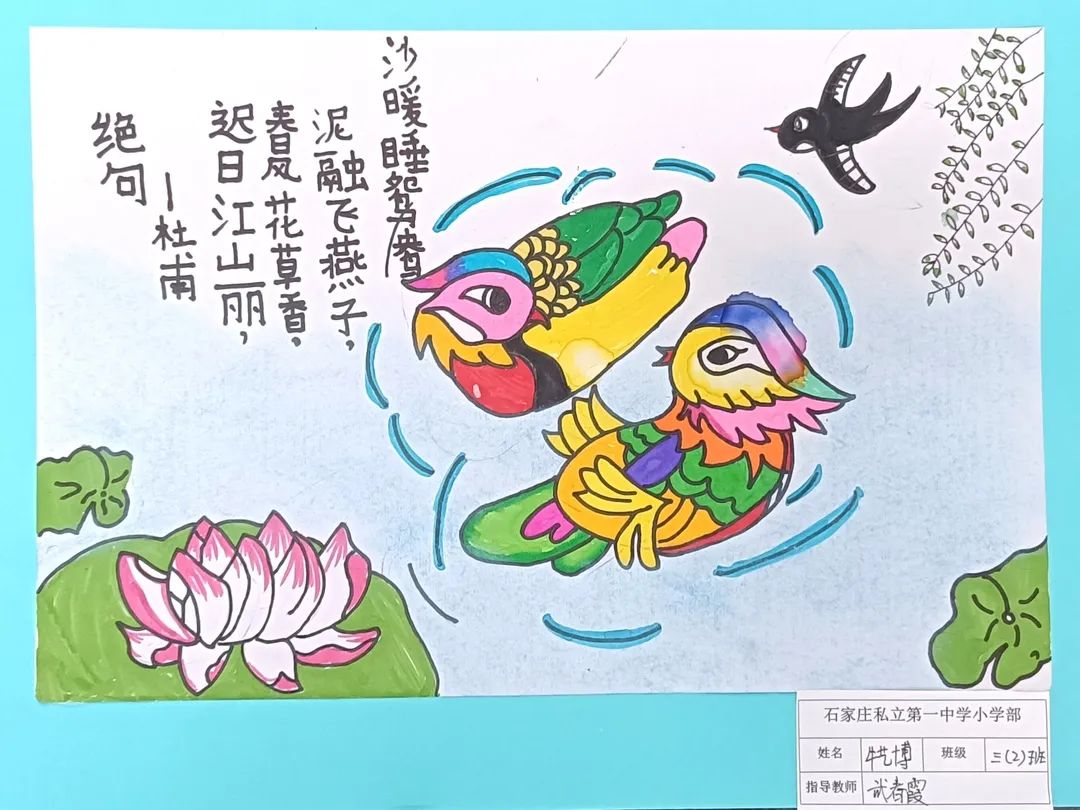 绝句
—杜甫
迟日江山丽,
春风花草香,
泥融飞燕子,
沙暖睡鸳鸯
石家庄私立第一中学小学部
姓名 牛艺博 班级 三(2)班
指导教师